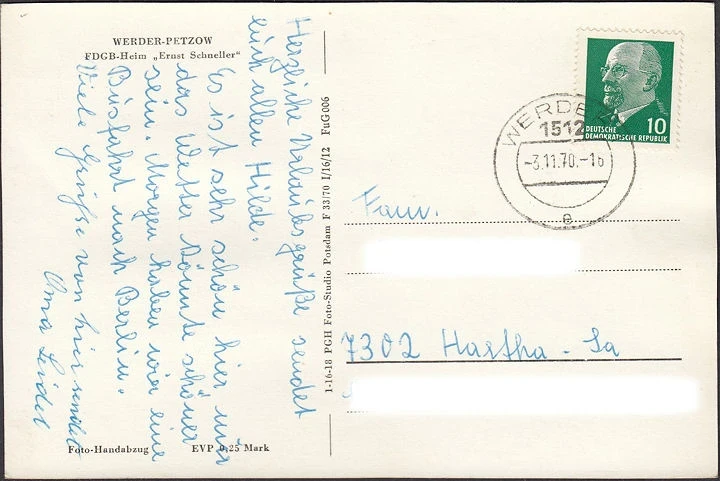 WERDER-PETZOW
FDGB-Heim „Ernst Schneller"
Herzliche Urlaubsgrüße sendet
euch allen Hilde.
Es ist sehr schön hier nur
das Wetter könnte schöner
sein. Morgen haben wir eine
Busfahrt nach Berlin.
Viele Grüße von hier sendet
Oma Seidel
Foto-Handabzug EVP 0,25 Mark
1-16-18 PGH Foto-Studio Potsdam F 33/70 I/16/12 FuG006
10
DEUTSCHE
DEMOKRATISCHE REPUBLIK
WERDER
1512
-3.11.70.-16
e
Fam.
7302 Hartha - Sa